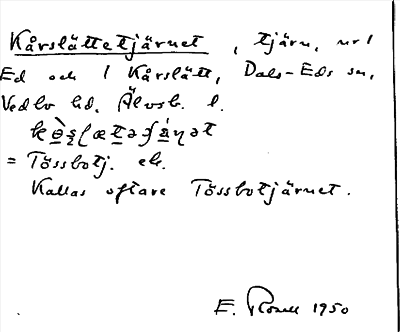 Kårslättetjärnet, tjärn, url
Ed och l Kårslätt, Dals-Eds sn,
Vedbo hd. Älvsb. l.
= Tössbotj. ek.
Kallas oftare Tössbotjärnet.
E. Rosell 1950